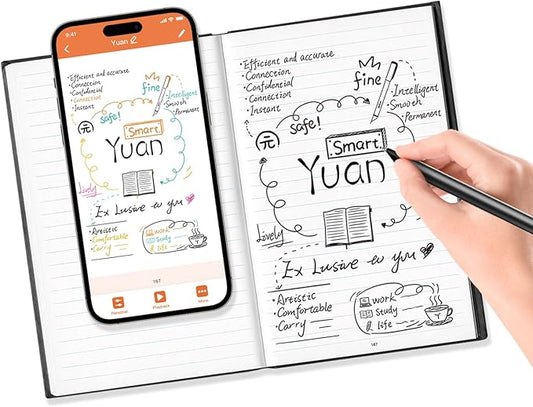 9:41
Yuan
·Efficient and accurate
·Connection
·Confidential
·Connection
·Instant
fine
Intelligent
Smooth
Permanent
元
safe!
Smart
Yuan
Lively
Ex Lusive to you
·Artistic
·Comfortable
·Carry
work
Study
& life
167
Personal
Playback
More
·Efficient and accurate
·Connection
·Confidential
·Connection
·Instant
fine
Intelligent
Smooth
Permanent
元
safe!
Smart
Yuan
Lively
Ex Lusive to you
·Artistic
·Comfortable
·Carry
work
Study
& life
167